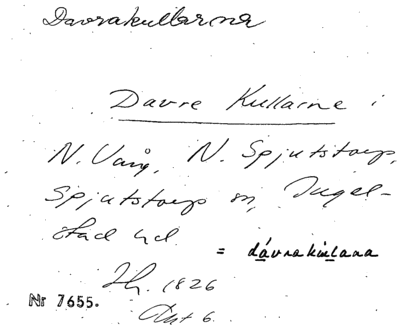 Davrakullarna
Davre Kullarne i
N. Vång, N. Spjutstorp,
Spjutstorps sn, Ingel-
stad hd
= dávrakùlana
Jh. 1826
Akt 6.
Nr 7655.